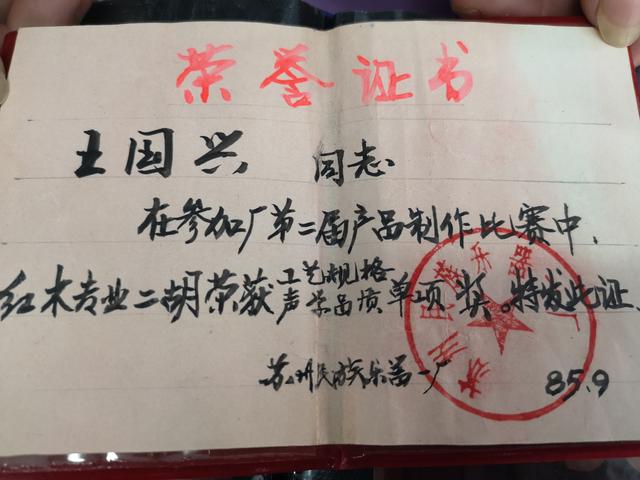 荣誉证书
王国兴 同志
在参加厂第二届产品制作比赛中,
红木专业二胡荣获工艺规格声学品质单项奖。特发此证
苏州民族乐器一厂 85.9